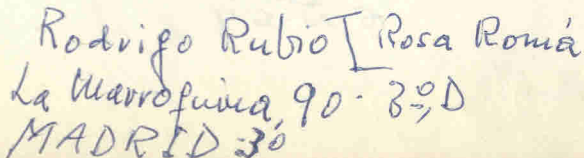 Rodrigo Rubio I Rosa Romá
La Marroquina, 90 - 3º, D
MADRID-30